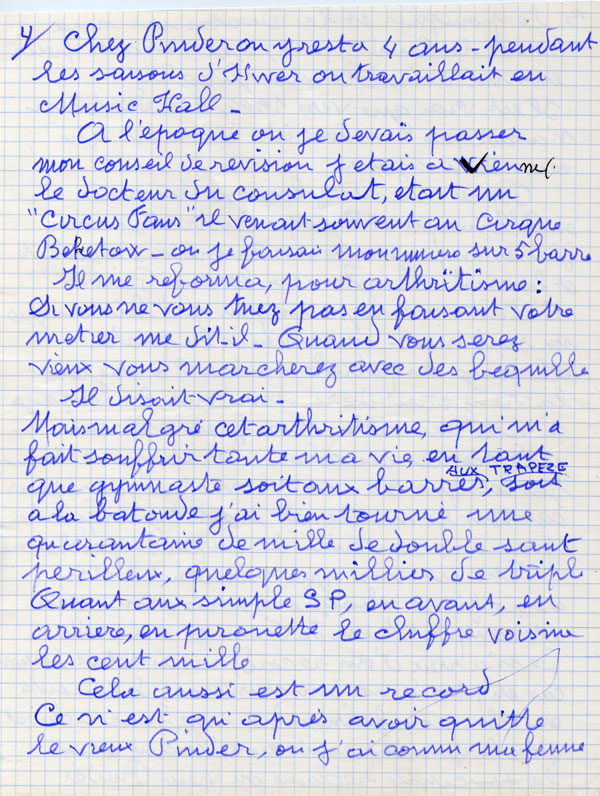 4/ Chez Pinder on y resta 4 ans - pendant
les saisons d'Hiver on travaillait en
Music Hall -
A l'époque ou je devais passer
mon conseil de revision j etais a Vienne
le docteur du consulat, etait un
"Circus Fans" il venait souvent au Cirque
Beketow - ou je faisais mon numero sur 5 barre
Il me reforma, pour arthritisme :
Si vous ne vous tuez pas en faisant votre
metier me dit-il - Quand vous serez
vieux vous marcherez avec des bequille
Il disait vrai -
Mais malgré cet arthritisme, qui m'a
fait souffrir toute ma vie, en tant
que gymnaste soit aux barres, AUX TRAPEZE soit
a la batoude j'ai bien tourné une
quarantaine de mille de double saut
perilleux, quelques milliers de triple
Quant aux simple S P, en avant, en
arriere, en pirouette le chiffre voisine
les cent mille
Cela aussi est un record
Ce n'est qu'après avoir quitté
le vieux Pinder, ou j'ai connu ma femme